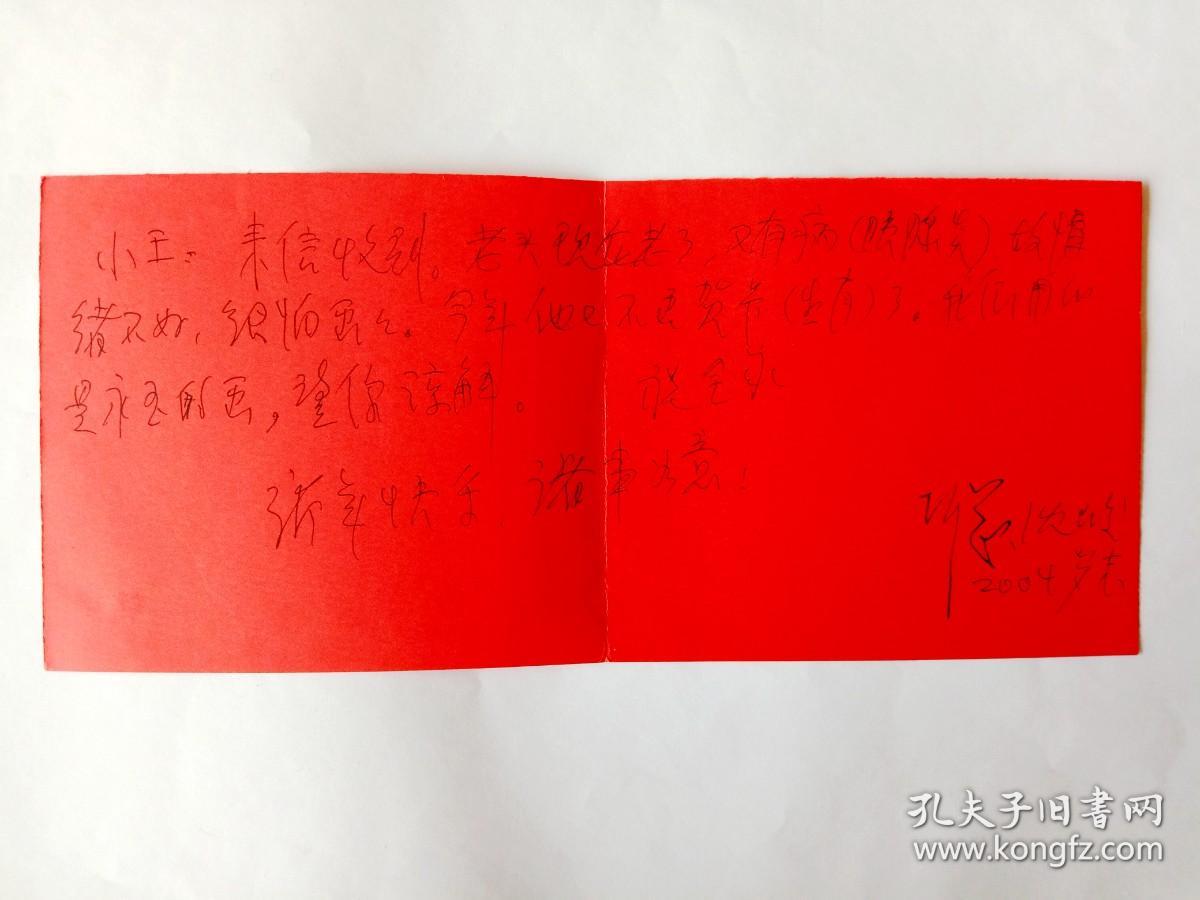 小王：来信收到。老头现在老了，又有病(胰腺炎)故情
绪不好，很怕画了。今年他也不画贺卡(生肖)了。我们用的
是永玉的画，望你谅解。 祝全家
新年快乐，诸事如意！
2004岁末
孔夫子旧书网
www.kongfz.com